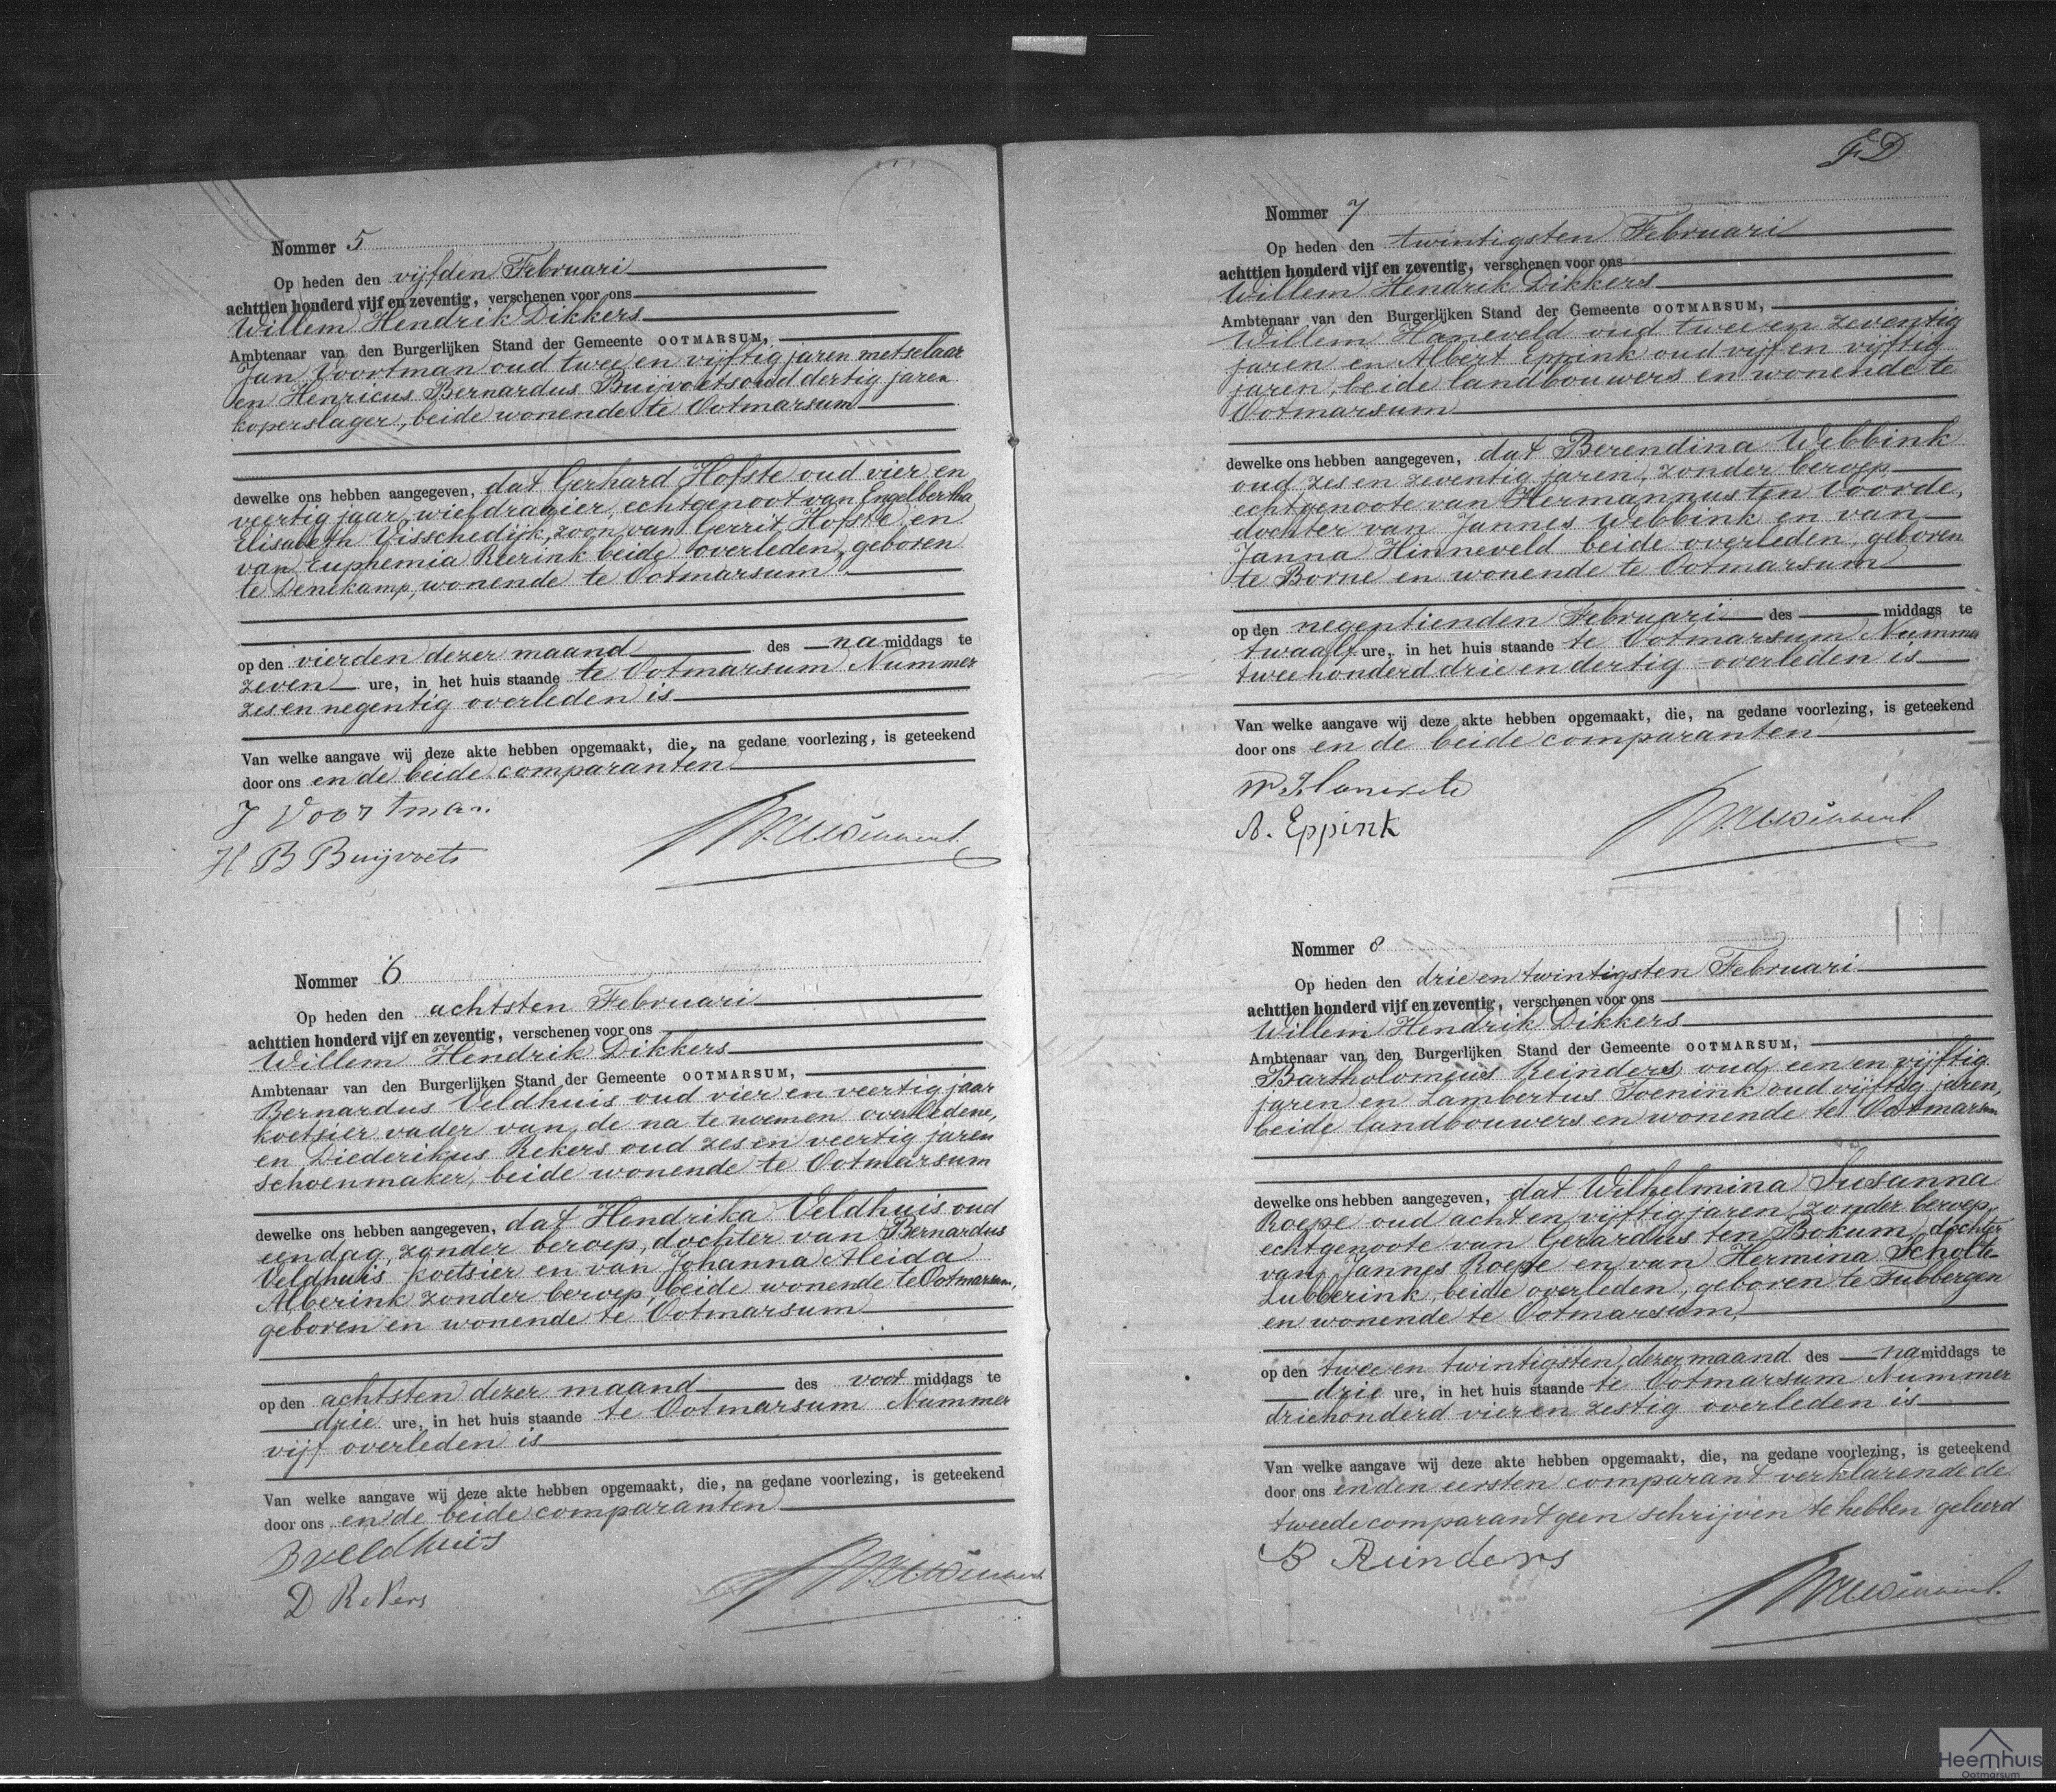 Nommer 5
Op heden den vijfden Februari
achttien honderd vijf en zeventig, verschenen voor ons
Willem Hendrik Dikkers
Ambtenaar van den Burgerlijken Stand der Gemeente OOTMARSUM,
Jan Voortman oud twee en vijftig jaren metselaar
en Henricus Bernardus Buijvoets oud dertig jaren
koperslager, beide wonende te Ootmarsum
dewelke ons hebben aangegeven, dat Gerhard Hofste oud vier en
veertig jaar, wieldraaier, echtgenoot van Engelbertha
Elisabeth Visschedijk, zoon van Gerrit Hofste en
van Euphemia Reerink beide overleden, geboren
te Denekamp, wonende te Ootmarsum
op den vierden dezer maand des na middags te
zeven ure, in het huis staande te Ootmarsum Nummer
zes en negentig overleden is
Van welke aangave wij deze akte hebben opgemaakt, die, na gedane voorlezing, is geteekend
door ons en de beide comparanten
J Voortman
H B Buijvoets
Nommer 6
Op heden den achtsten Februari
achttien honderd vijf en zeventig, verschenen voor ons
Willem Hendrik Dikkers
Ambtenaar van den Burgerlijken Stand der Gemeente OOTMARSUM,
Bernardus Veldhuis oud vier en veertig jaar
koetsier vader van de na te noemen overledene,
en Diederikus Rekers oud zes en veertig jaren
schoenmaker, beide wonende te Ootmarsum
dewelke ons hebben aangegeven, dat Hendrika Veldhuis oud
een dag, zonder beroep, dochter van Bernardus
Veldhuis koetsier en van Johanna Aleida
Alberink zonder beroep, beide wonende te Ootmarsum,
geboren en wonende te Ootmarsum
op den achtsten dezer maand des voor middags te
drie ure, in het huis staande te Ootmarsum Nummer
vijf overleden is
Van welke aangave wij deze akte hebben opgemaakt, die, na gedane voorlezing, is geteekend
door ons en de beide comparanten
B Veldhuis
D Rekers
FD
Nommer 7
Op heden den twintigsten Februari
achttien honderd vijf en zeventig, verschenen voor ons
Willem Hendrik Dikkers
Ambtenaar van den Burgerlijken Stand der Gemeente OOTMARSUM,
Willem Haneveld oud twee en zeventig
jaren en Albert Eppink oud vijf en vijftig
jaren, beide landbouwers en wonende te
Ootmarsum
dewelke ons hebben aangegeven, dat Berendina Webbink
oud zes en zeventig jaren, zonder beroep
echtgenoote van Hermannus ten Voorde,
dochter van Jannes Webbink en van
Janna Hinneveld beide overleden, geboren
te Borne en wonende te Ootmarsum
op den negentienden Februari des middags te
twaalf ure, in het huis staande te Ootmarsum Nummer
twee honderd drie en dertig overleden is
Van welke aangave wij deze akte hebben opgemaakt, die, na gedane voorlezing, is geteekend
door ons en de beide comparanten
A. Eppink
Nommer 8
Op heden den drie en twintigsten Februari
achttien honderd vijf en zeventig, verschenen voor ons
Willem Hendrik Dikkers
Ambtenaar van den Burgerlijken Stand der Gemeente OOTMARSUM,
Bartholomeus Reinders oud een en vijftig
jaren en Lambertus Toenink oud vijftig jaren,
beide landbouwers en wonende te Ootmarsum
dewelke ons hebben aangegeven, dat Wilhelmina Susanna
Roepe oud acht en vijftig jaren, zonder beroep,
echtgenoote van Gerardus ten Bokum, dochter
van Jannes Roepe en van Hermina Scholte
Lubberink, beide overleden, geboren te Tubbergen
en wonende te Ootmarsum,
op den twee en twintigsten dezer maand des na middags te
drie ure, in het huis staande te Ootmarsum Nummer
driehonderd vier en zestig overleden is
Van welke aangave wij deze akte hebben opgemaakt, die, na gedane voorlezing, is geteekend
door ons en den eersten comparant verklarende de
tweede comparant geen schrijven te hebben geleerd
B Reinders
Heemhuis
Ootmarsum